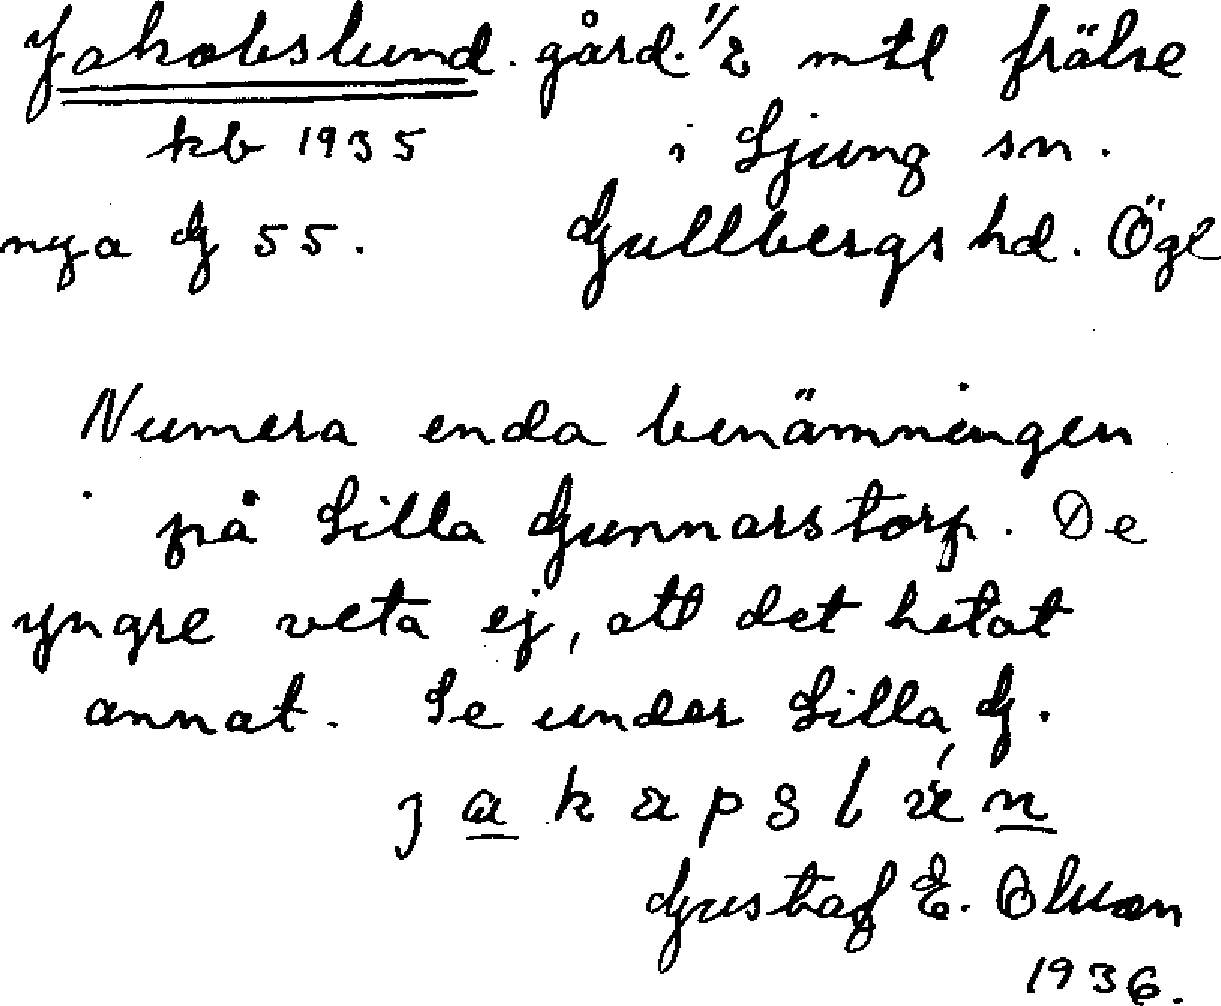 Jakobslund. gård. 1/2 mtl frälse
kb 1935 i Ljung sn.
nya G 55. Gullbergs hd. Ögl
Numera enda benämningen
på Lilla Gunnarstorp. De
yngre veta ej, att det hetat
annat. Se under Lilla G.
Gustaf E. 
1936.